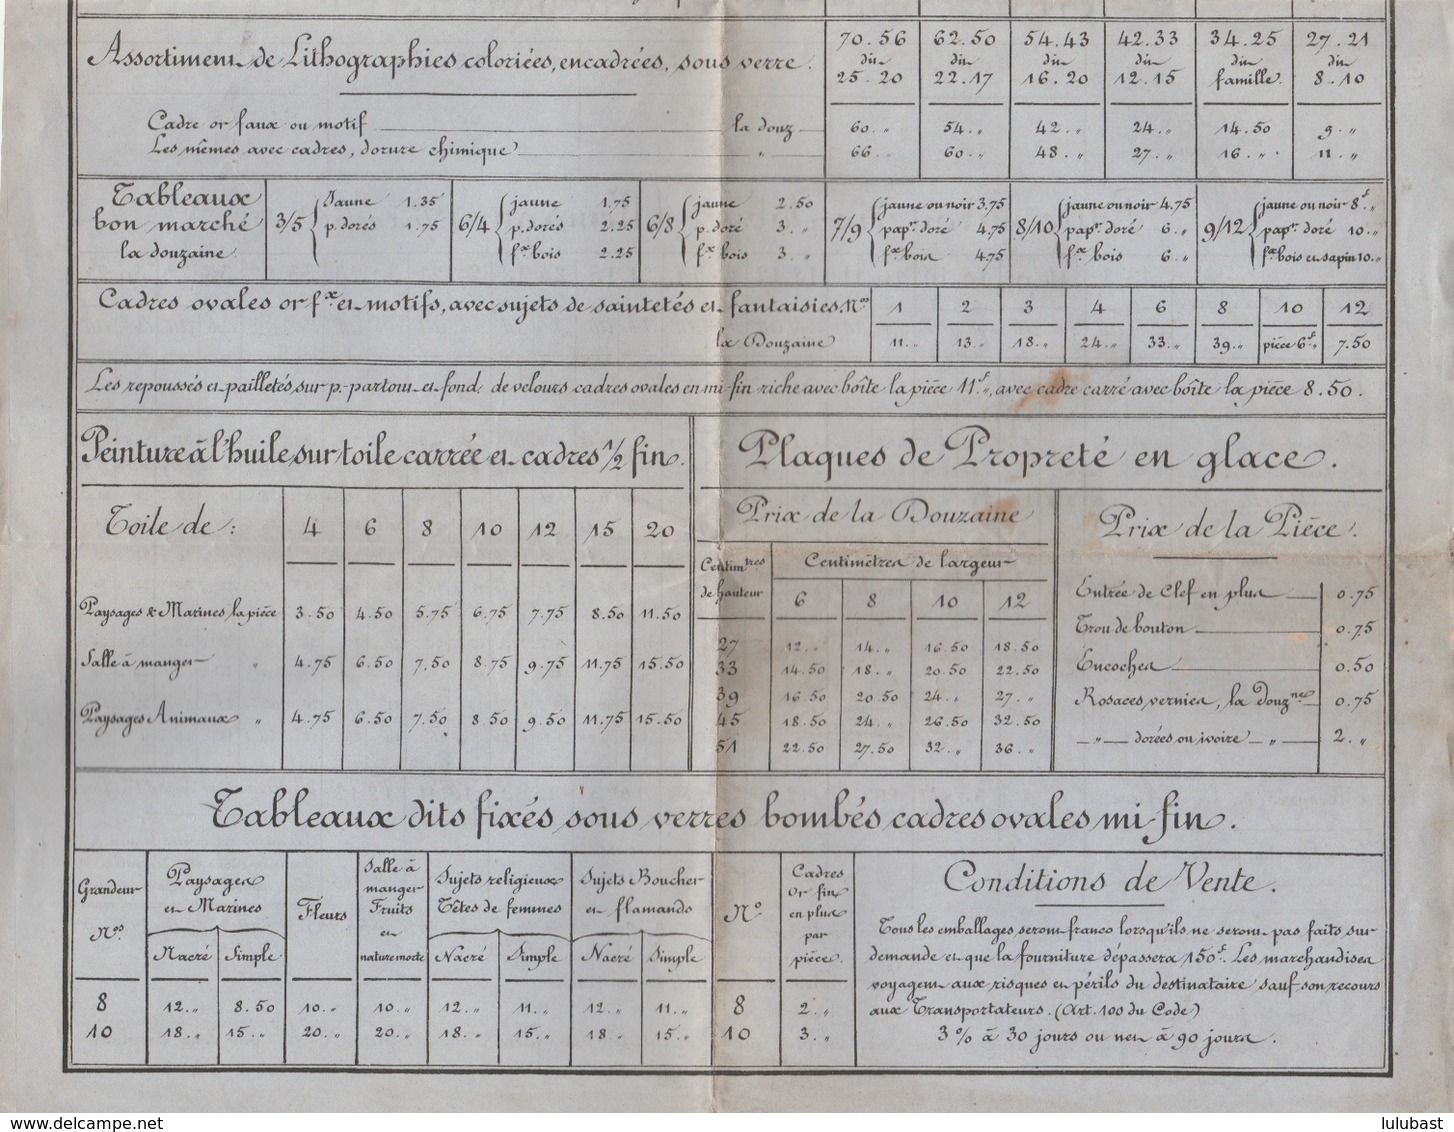 Assortiment de Lithographies coloriées, encadrées, sous verre.
70.56 62.50 54.43 42.33 34.25 27.21
dits dits dits dits dits dits
25.20 22.17 16.20 12.15 famille. 8.10
Cadre or faux ou motif la douz 60.„ 54.„ 42.„ 24.„ 14.50 9.„
Les mêmes avec cadres, dorure chimique „ 66.„ 60.„ 48.„ 27.„ 16.„ 11.„
Tableaux
bon marché
la douzaine
3/5 jaune 1.35
p. dorés 1.75
6/4 jaune 1.75
p. dorés 2.25
fx bois 2.25
6/8 jaune 2.50
p. doré 3.„
fx bois 3.„
7/9 jaune ou noir 3.75
papr. doré 4.75
fx bois 4.75
8/10 jaune ou noir 4.75
papr. doré 6.„
fx bois 6.„
9/12 jaune ou noir 8f.„
papr. doré 10.„
fx bois et sapin 10.„
Cadres ovales or fx et motifs, avec sujets de saintetés et fantaisies. Nos 1 2 3 4 6 8 10 12
la Douzaine 11.„ 13.„ 18.„ 24.„ 33.„ 39.„ pièce 6f.„ 7.50
Les repoussés et pailletés sur p.-partout et fond de velours cadres ovales en mi-fin riche avec boîte la pièce 11f.„, avec cadre carré avec boîte la pièce 8.50.
Peinture à l'huile sur toile carrée et cadres 1/2 fin.
Toile de: 4 6 8 10 12 15 20
Paysages & Marines la pièce 3.50 4.50 5.75 6.75 7.75 8.50 11.50
Salle à manger „ 4.75 6.50 7.50 8.75 9.75 11.75 15.50
Paysages Animaux „ 4.75 6.50 7.50 8.50 9.50 11.75 15.50
Plaques de Propreté en glace.
Prix de la Douzaine
Centimtres
de hauteur
Centimètres de largeur
6 8 10 12
27 12.„ 14.„ 16.50 18.50
33 14.50 18.„ 20.50 22.50
39 16.50 20.50 24.„ 27.„
45 18.50 24.„ 26.50 32.50
51 22.50 27.50 32.„ 36.„
Prix de la Pièce.
Entrée de Clef en plus 0.75
Trou de bouton 0.75
Encoches 0.50
Rosaces vernies, la douzne 0.75
„ dorées ou ivoire „ 2.„
Tableaux dits fixés sous verres bombés cadres ovales mi-fin.
Grandeur
Nos
Paysages
et Marines
Nacré Simple
Fleurs
Salle à
manger
Fruits
et
nature morte
Sujets religieux
Têtes de femmes
Nacré Simple
Sujets Boucher
et flamands
Nacré Simple
No.
Cadres
Or fin
en plus
par
pièce.
8 12.„ 8.50 10.„ 10.„ 12.„ 11.„ 12.„ 11.„ 8 2.„
10 18.„ 15.„ 20.„ 20.„ 18.„ 15.„ 18.„ 15.„ 10 3.„
Conditions de Vente.
Tous les emballages seront franco lorsqu'ils ne seront pas faits sur
demande et que la fourniture dépassera 150f. Les marchandises
voyagent aux risques et périls du destinataire sauf son recours
aux Transportateurs. (Art. 100 du Code)
3 % à 30 jours ou net à 90 jours.
www.delcampe.net
lulubast